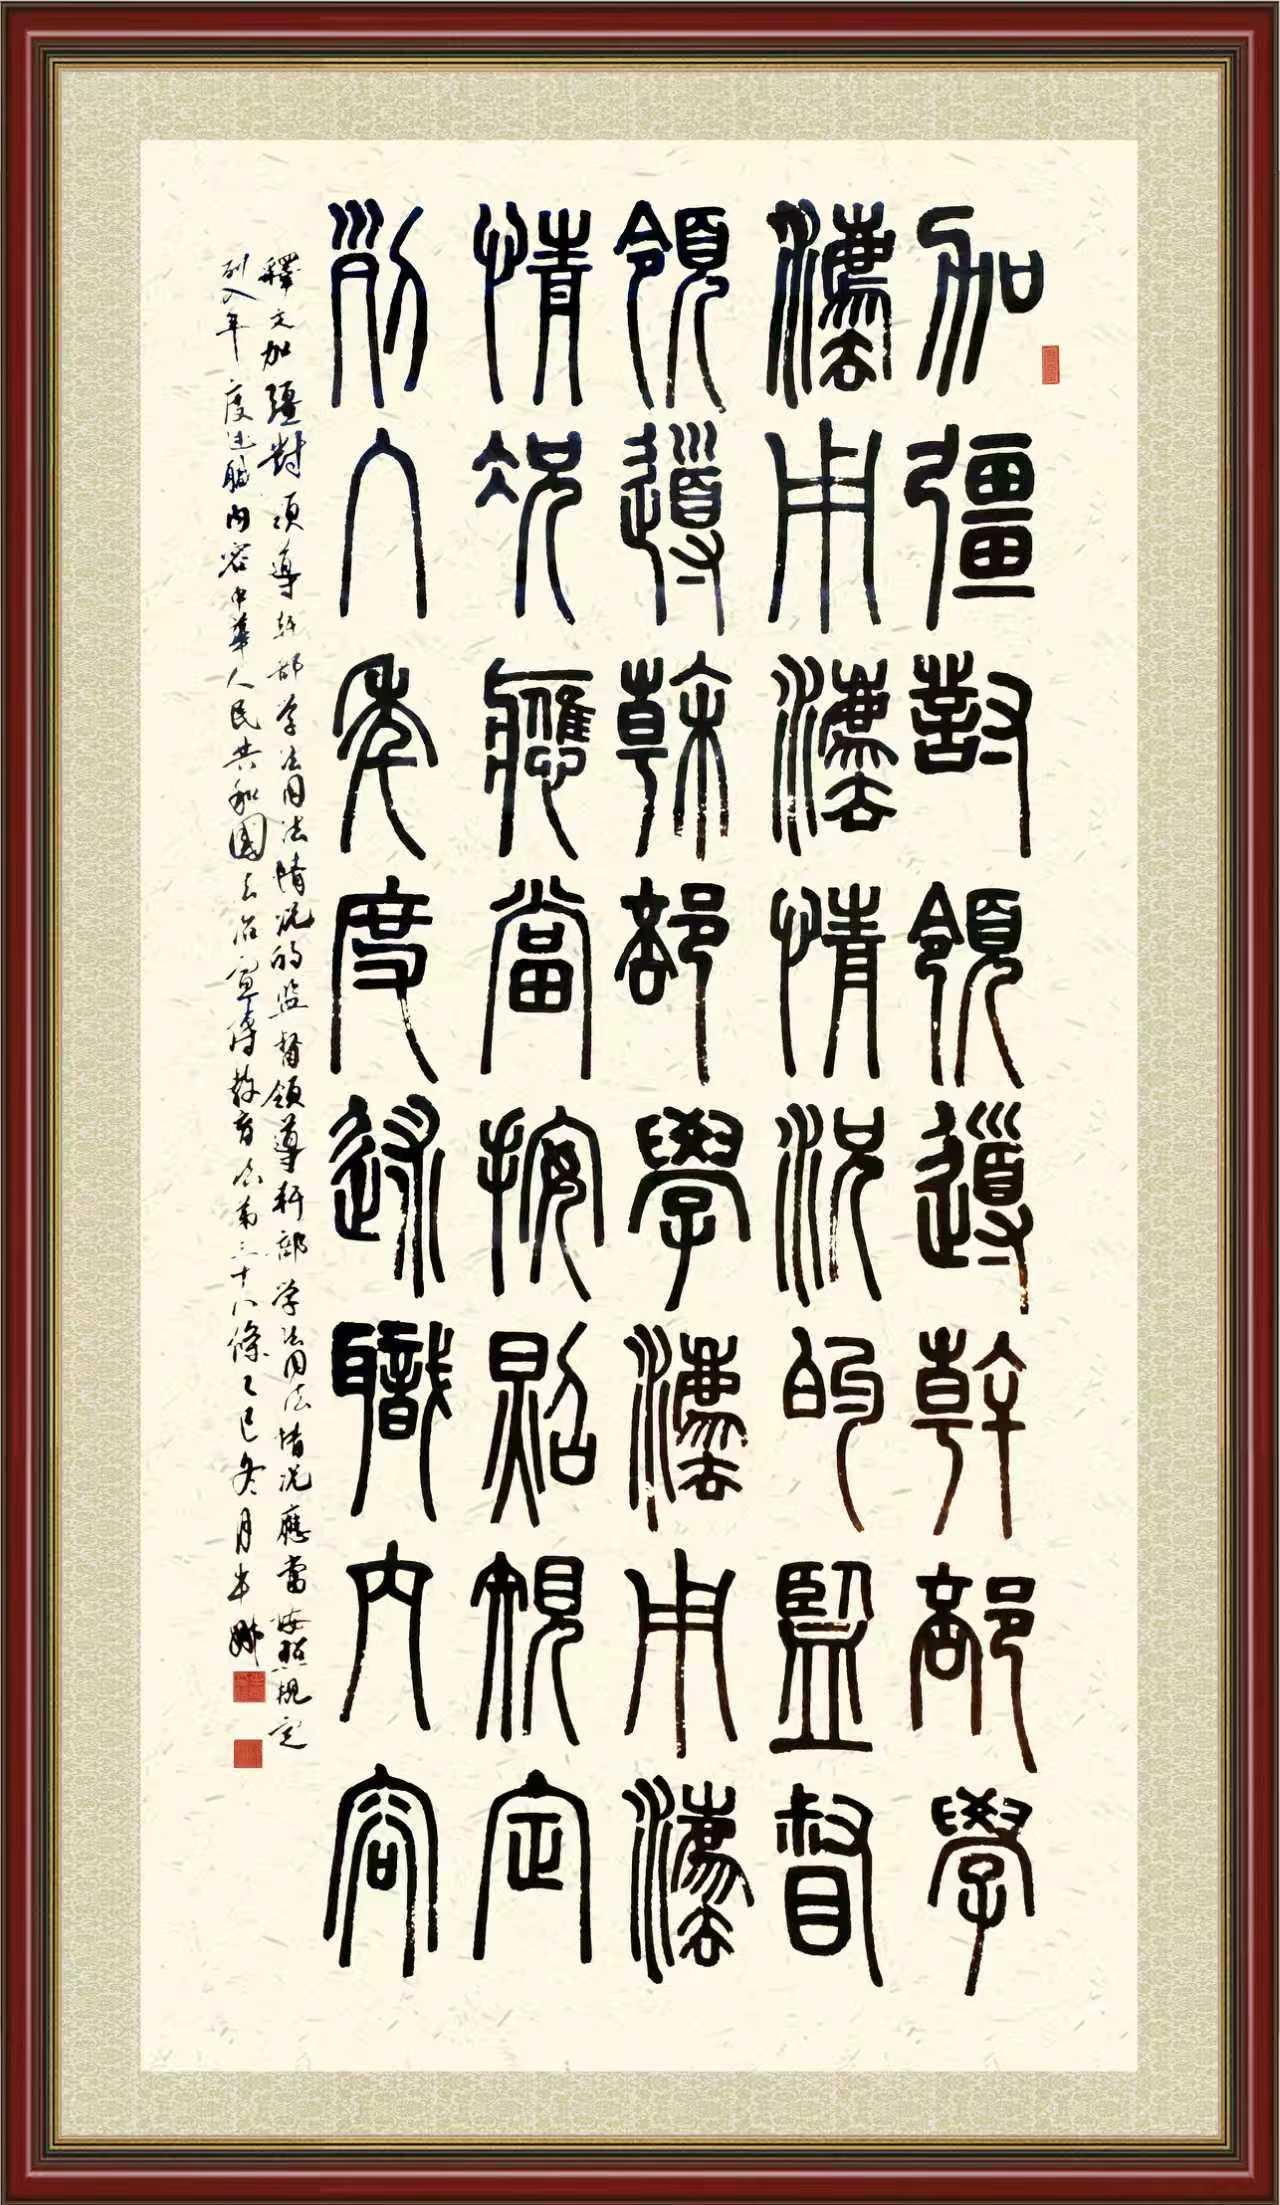 加彊對領導幹部學
灋用灋情況的監督
領導榦部學灋用灋
情況應當按照規定
列入年度述職內容
釋文加彊對領導幹部学法用法情况的监督領導幹部学法用法情况應當按照規定
列入年度述職内容中華人民共和國法治宣傳教育法第三十八條乙巳冬月